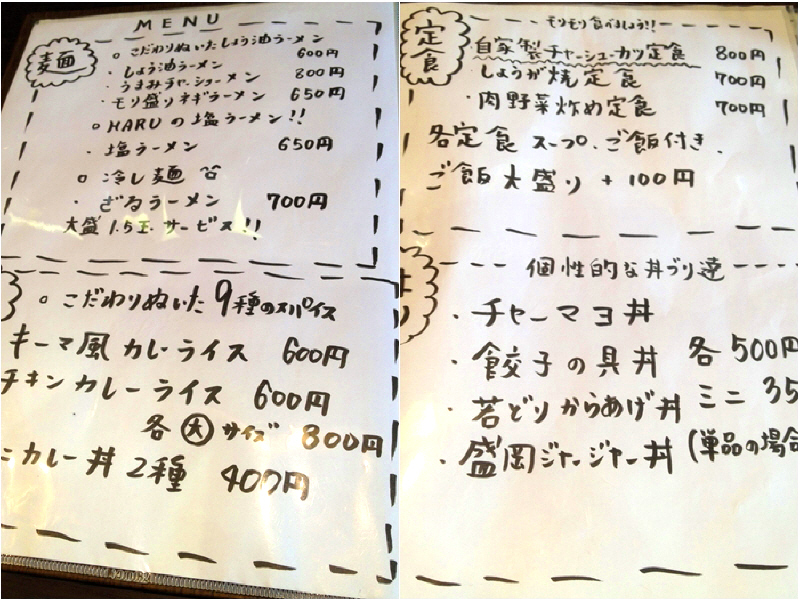 MENU
麦面
○こだわりぬいたしょう油ラーメン
・しょう油ラーメン 600円
・うまみチャーシューメン 800円
・モリ盛りネギラーメン 650円
○HARUの塩ラーメン!!
・塩ラーメン 650円
○冷し麺
・ざるラーメン 700円
大盛1.5玉サービス!!
○こだわりぬいた9種のスパイス
キーマ風カレーライス 600円
チキンカレーライス 600円
各大サイズ 800円
ニカレー丼2種 400円
定食
モリモリ食べましょう!!
・自家製チャーシューカツ定食 800円
・しょうが焼定食 700円
・肉野菜炒め定食 700円
各定食スープ、ご飯付き、
ご飯大盛り+100円
個性的な丼ブリ達
・チャーマヨ丼
・餃子の具丼 各500円
・若どりからあげ丼 ミニ 35
・盛岡ジャージャー丼 (単品の場合